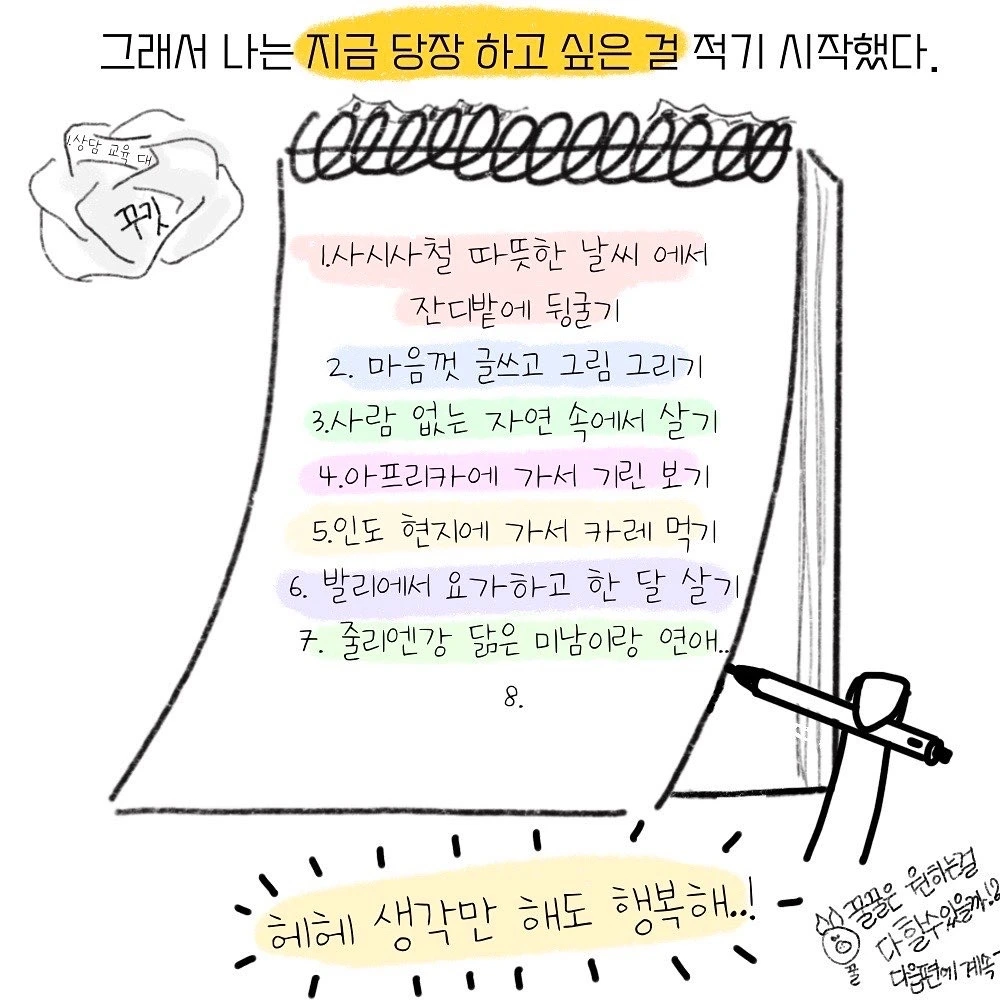 그래서 나는 지금 당장 하고 싶은 걸 적기 시작했다.
1.상담 교육 대
꾸깃
1.사시사철 따뜻한 날씨 에서
잔디밭에 뒹굴기
2. 마음껏 글쓰고 그림 그리기
3.사람 없는 자연 속에서 살기
4.아프리카에 가서 기린 보기
5.인도 현지에 가서 카레 먹기
6. 발리에서 요가하고 한 달 살기
7. 줄리엔강 닮은 미남이랑 연애..
8.
헤헤 생각만 해도 행복해..!
끌끌은 원하는걸
다 할수있을까!?
다음편에 계속~
끌